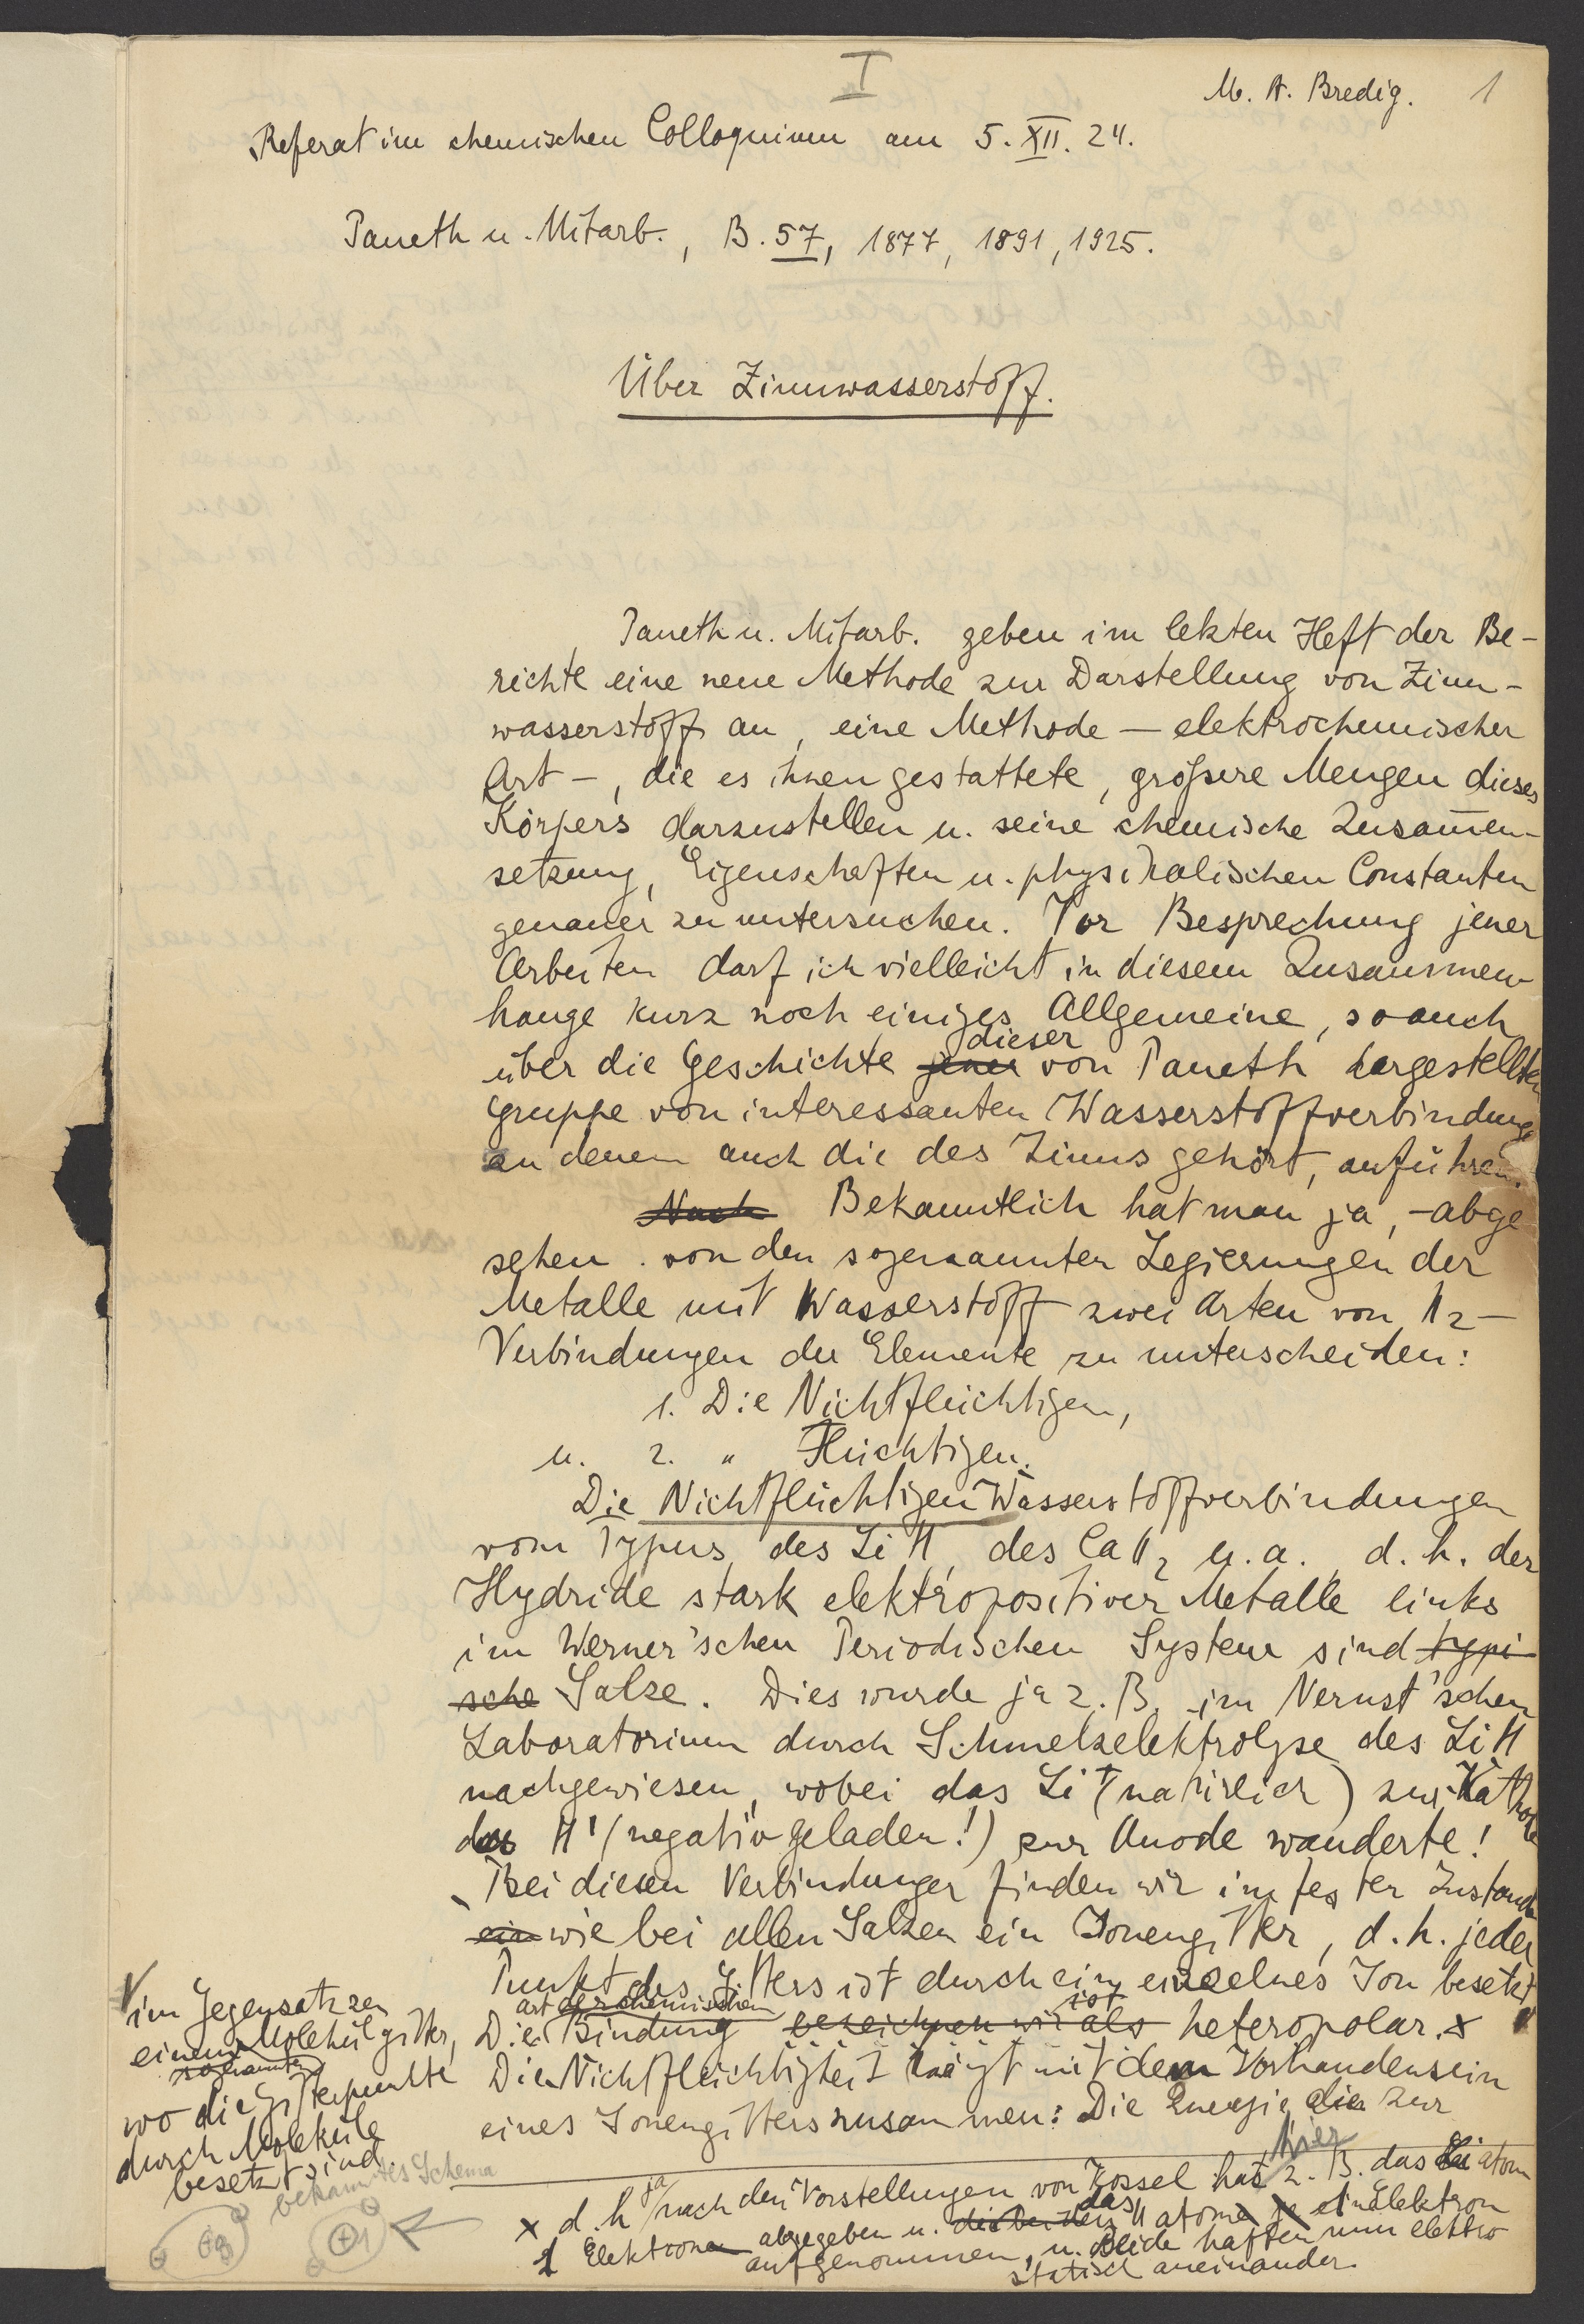 I
M. A. Bredig. 1
Referat im chemischen Colloquium am 5. XII. 24.
Paneth u. Mitarb., B. 57, 1877, 1891, 1925.
Über Zinnwasserstoff.
Paneth u. Mitarb. geben im letzten Heft der Be-
richte eine neue Methode zur Darstellung von Zinn-
wasserstoff an, eine Methode — elektrochemischer
Art —, die es ihnen gestattete, größere Mengen dieses
Körpers darzustellen u. seine chemische Zusam̅en-
setzung, Eigenschaften u. physikalischen Constanten
genauer zu untersuchen. Vor Besprechung jener
Arbeiten darf ich vielleicht in diesem Zusammen-
hange kurz noch einiges Allgemeine, so auch
dieser
über die Geschichte jener von Paneth hergestellten
Gruppe von interessanten Wasserstoffverbindung
zu denen auch die des Zinns gehört, anführen.
Nach Bekanntlich hat man ja, - abge
sehen von den sogenannten Legierungen der
Metalle mit Wasserstoff zwei Arten von H2-
Verbindungen der Elemente zu unterscheiden:
1. Die Nichtflüchtigen,
u. 2. " Flüchtigen.
Die Nichtflüchtigen Wasserstoffverbindungen
vom Typus des LiH, des CaH2 u. a. d. h. der
Hydride stark elektropositiver Metalle links
im Werner'schen Periodischen System sind typi-
sche Salze. Dies wurde ja z. B. im Nernst'schen
Laboratorium durch Schmelzelektrolyse des LiH
nachgewiesen, wobei das Li+ (natürlich) zur Kathode
das H' (negativ geladen!) zur Anode wanderte!
Bei diesen Verbindungen finden wir im festen Zustande
ein wie bei allen Salzen ein Ionengitter, d. h. jeder
Punkt des Gitters ist durch ein einzelnes Ion besetzt
art der chemischen ist
Die Bindung bezeichnen wir als heteropolar. x
Die Nichtflüchtigkeit hängt mit dem Vorhandensein
eines Ionengitters zusammen: Die Energie die zur
im Gegensatz zu
einem Molekülgitter,
sogenannten
wo die Gitterpunkte
durch Moleküle
besetzt sind.
bekanntes Schema
ja hier
x d. h. nach den Vorstellungen von Kossel hat z. B. das Li atom
1 Elektron abgegeben u. das H atom ein Elektron
aufgenommen, u. Beide haften nun elektro
statisch aneinander.